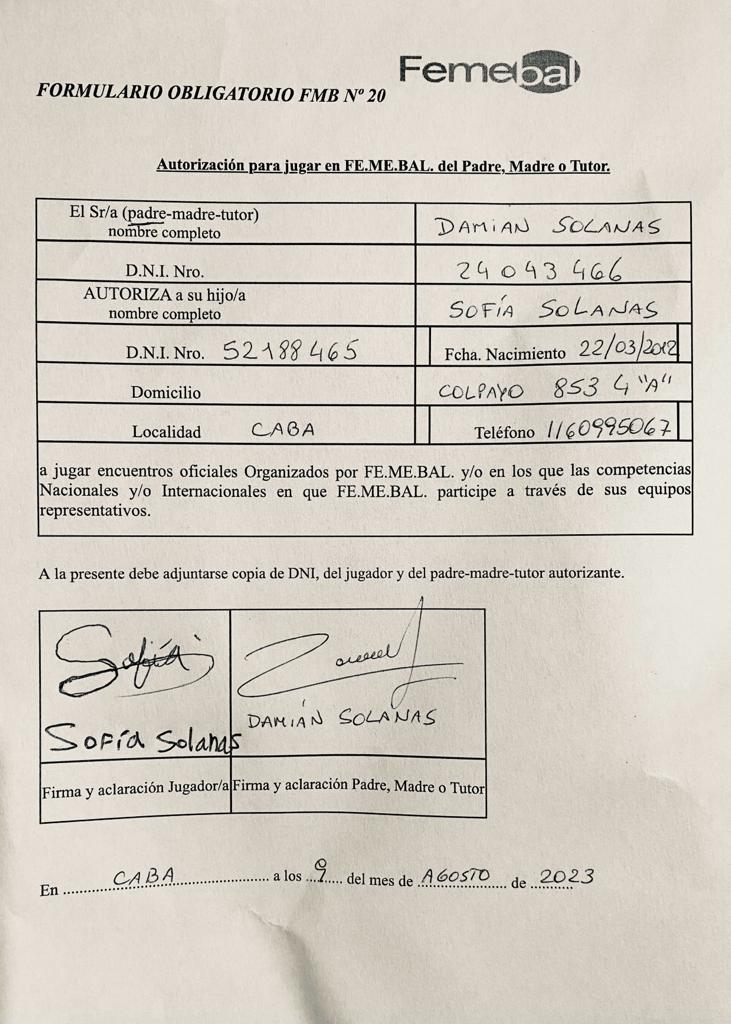 Femebal
FORMULARIO OBLIGATORIO FMB Nº 20
Autorización para jugar en FE.ME.BAL. del Padre, Madre o Tutor.
El Sr/a (padre-madre-tutor)
nombre completo
DAMIAN SOLANAS
D.N.I. Nro.
24 043 466
AUTORIZA a su hijo/a
nombre completo
SOFÍA SOLANAS
D.N.I. Nro. 52188465
Fcha. Nacimiento 22/03/2012
Domicilio
COLPAYO 853 4 "A"
Localidad CABA
Teléfono 1160995067
a jugar encuentros oficiales Organizados por FE.ME.BAL. y/o en los que las competencias
Nacionales y/o Internacionales en que FE.ME.BAL. participe a través de sus equipos
representativos.
A la presente debe adjuntarse copia de DNI, del jugador y del padre-madre-tutor autorizante.
Sofía
Sofía Solanas
DAMIÁN SOLANAS
Firma y aclaración Jugador/a
Firma y aclaración Padre, Madre o Tutor
En CABA a los 9 del mes de AGOSTO de 2023